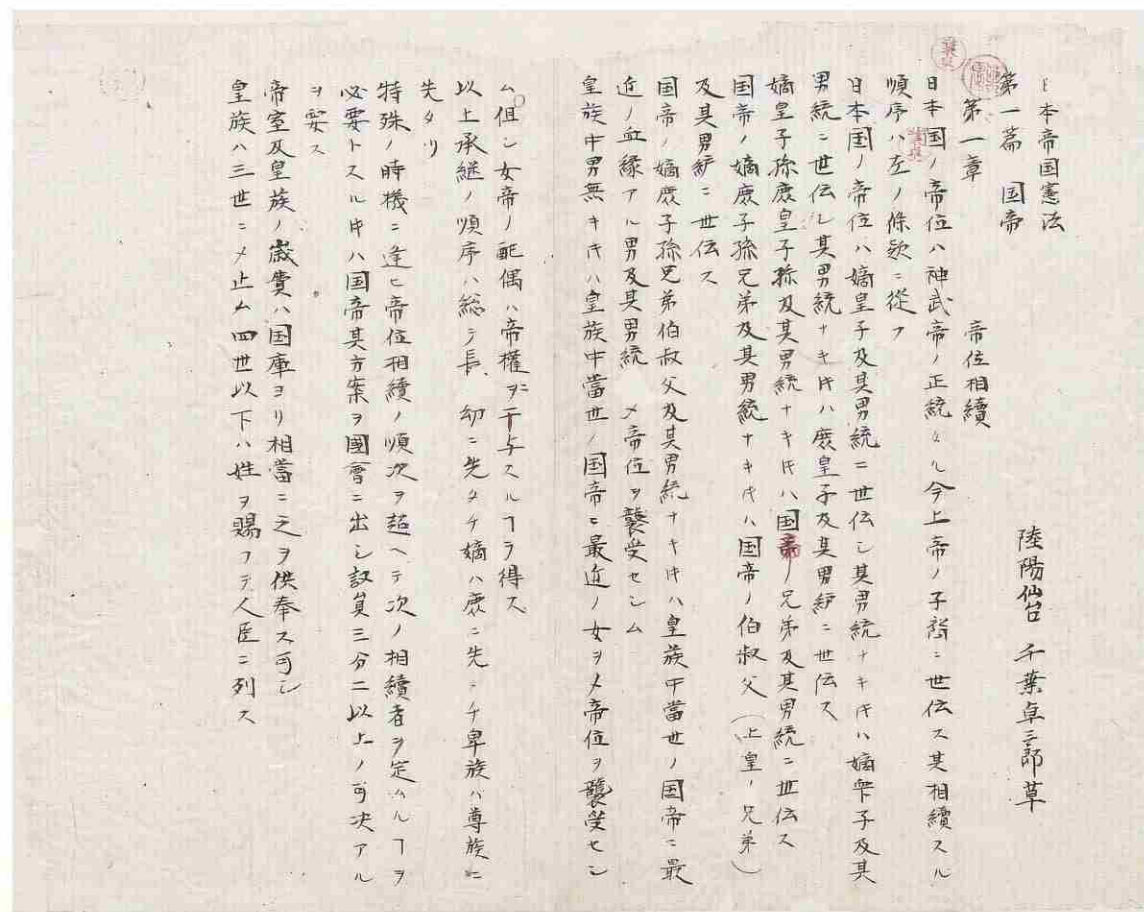 日本帝国憲法
陸陽仙台 千葉卓三郎草
第一篇 国帝
第一章 帝位相續
日本国ノ帝位ハ神武帝ノ正統タル今上帝ノ子裔ニ世伝ス其相續スル
順序ハ左ノ條欵ニ從フ
日本国ノ帝位ハ嫡皇子及其男統ニ世伝シ其男統ナキ片ハ嫡衆子及其
男統ニ世伝シ其男統ナキ片ハ庶皇子及其男統ニ世伝ス
嫡皇子孫庶皇子孫及其男統ナキ片ハ国帝ノ兄弟及其男統ニ世伝ス
国帝ノ嫡庶子孫兄弟及其男統ナキ片ハ国帝ノ伯叔父(上皇ノ兄弟)
及其男統ニ世伝ス
国帝ノ嫡庶子孫兄弟伯叔父及其男統ナキ片ハ皇族中當世ノ国帝ニ最
近ノ血縁アル男及其男統ヲ〆帝位ヲ襲受セシム
皇族中男無キ片ハ皇族中當世ノ国帝ニ最近ノ女ヲ〆帝位ヲ襲受セシ
ム但シ女帝ノ配偶ハ帝權ニ干与スルヿヲ得ス
以上承継ノ順序ハ総テ長幼ニ先タチ嫡ハ庶ニ先タチ卑族ハ尊族ニ
先タツ
特殊ノ時機ニ逢ヒ帝位相續ノ順次ヲ超ヘテ次ノ相續者ヲ定ムルヿヲ
必要トスル片ハ国帝其方案ヲ國會ニ出シ議員三分二以上ノ可决アル
ヲ要ス
帝室及皇族ノ歳費ハ国庫ヨリ相當ニ之ヲ供奉ス可シ
皇族ハ三世ニ〆止ム四世以下ハ姓ヲ賜フテ人臣ニ列ス